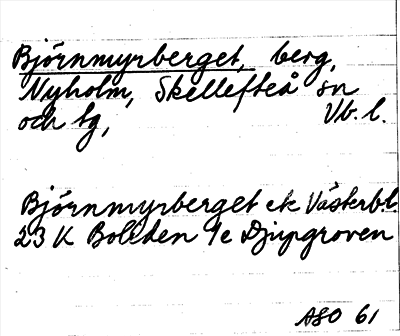 Björnmyrberget, berg,
Nyholm, Skellefteå sn
och tg, Vb. l.
Björnmyrberget ek Västerb.l.
23 K Boliden 1e Djupgroven
ASO 61